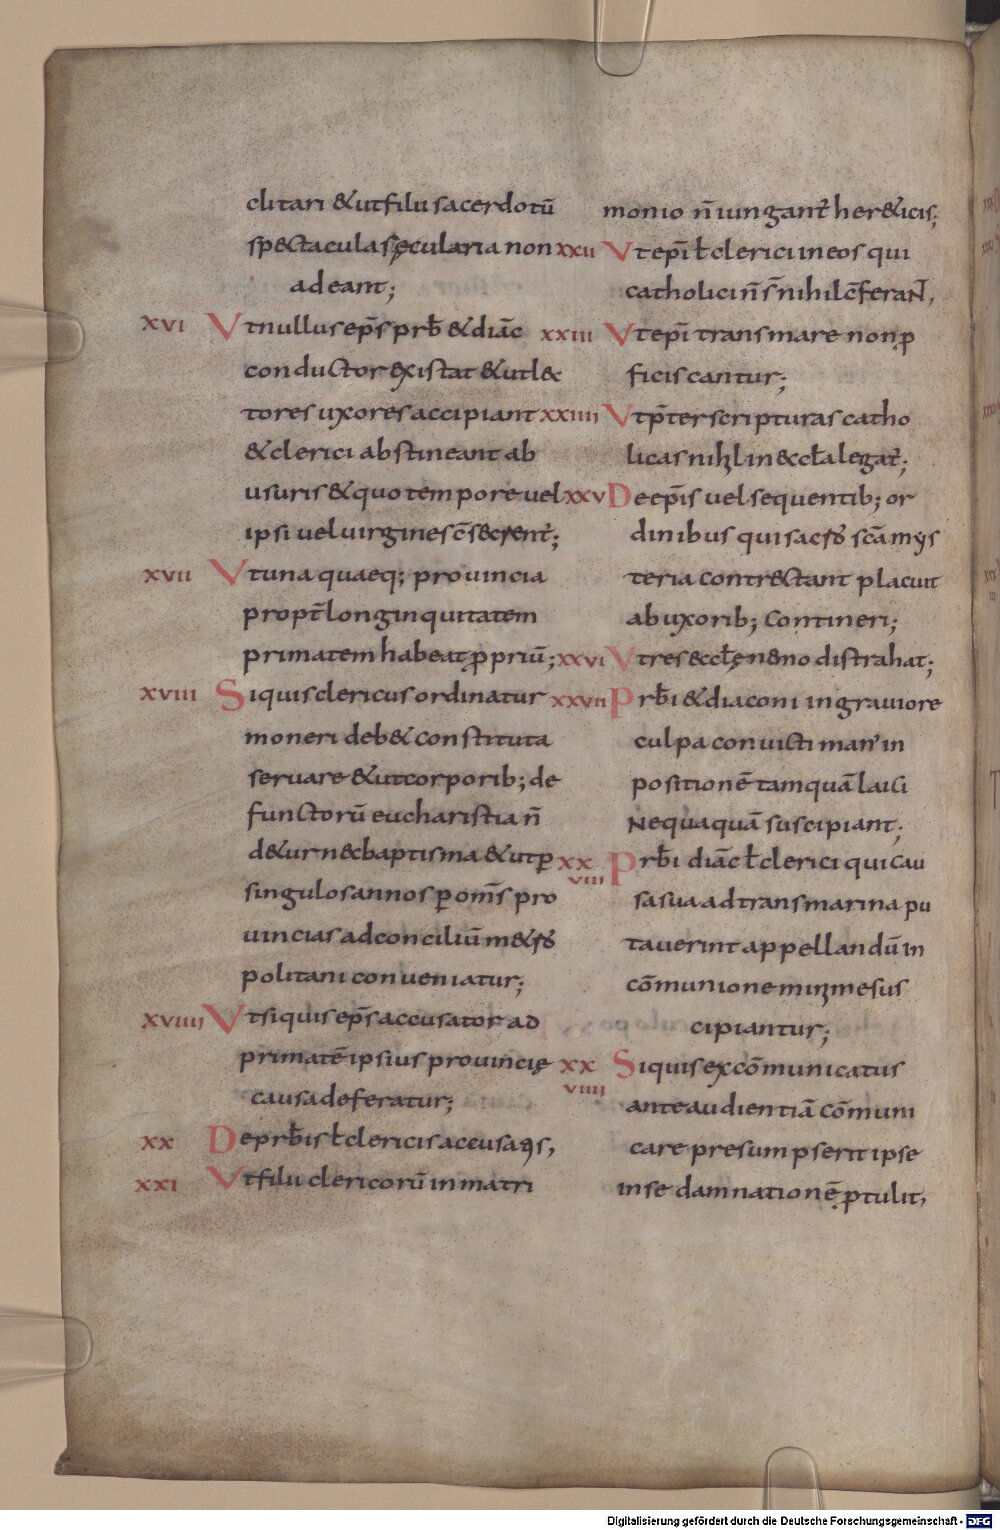 clitari & ut filii sacerdotū
sp&acula sęcularia non
adeant;
XVI Vt nullus ep̄s prƀ & diāc
conductor existat & ut l&
tores uxores accipiant
& clerici abstineant ab
usuris & quo tempore uel
ipsi uel uirgines c̄secrent̄;
XVII Vt una quaeq; prouincia
propt̄ longinquitatem
primatem habeat ꝓpriū;
XVIII Siquis clericus ordinatur
moneri deb& constituta
seruare & ut corporib; de
functorū eucharistia n̄
d&ur nec baptisma & ut ꝑ
singulos annos ꝑ om̄s pro
uincias ad conciliū m&ro
politani conueniatur;
XVIIII Vt siquis ep̄s accusator ad
primatē ipsius prouincię
causa deferatur;
XX De prƀis ł clericis accusatis,
XXI Vt filii clericorū in matri
monio n̄ iungant̄ her&icis;
XXII Vt ep̄i ł clerici in eos qui
catholici n̄ s̄ nihil c̄feraNT,
XXIII Vt ep̄i trans mare non ꝓ
ficiscantur;
XXIIII Vt p̄ter scripturas catho
licas nihil in eccła legat̄;
XXV De ep̄is uel sequentib; or
dinibus qui sacro scā mys
teria contrectant placuit
ab uxorib; contineri;
XXVI Vt res eccłę nemo distrahat;
XXVII Prƀi & diaconi in grauiore
culpa conuicti man' in
positionē tamquā laici
Nequaquā suscipiant;
XXVIII Prƀi diāc ł clerici qui cau
sas suas ad transmarina pu
tauerint appellandū in
cōmunione minime sus
cipiantur;
XXVIIII Siquis excōmunicatus
ante audientiā cōmuni
care presumpserit ipse
in se damnationē ꝓtulit,
Digitalisierung gefördert durch die Deutsche Forschungsgemeinschaft - DFG